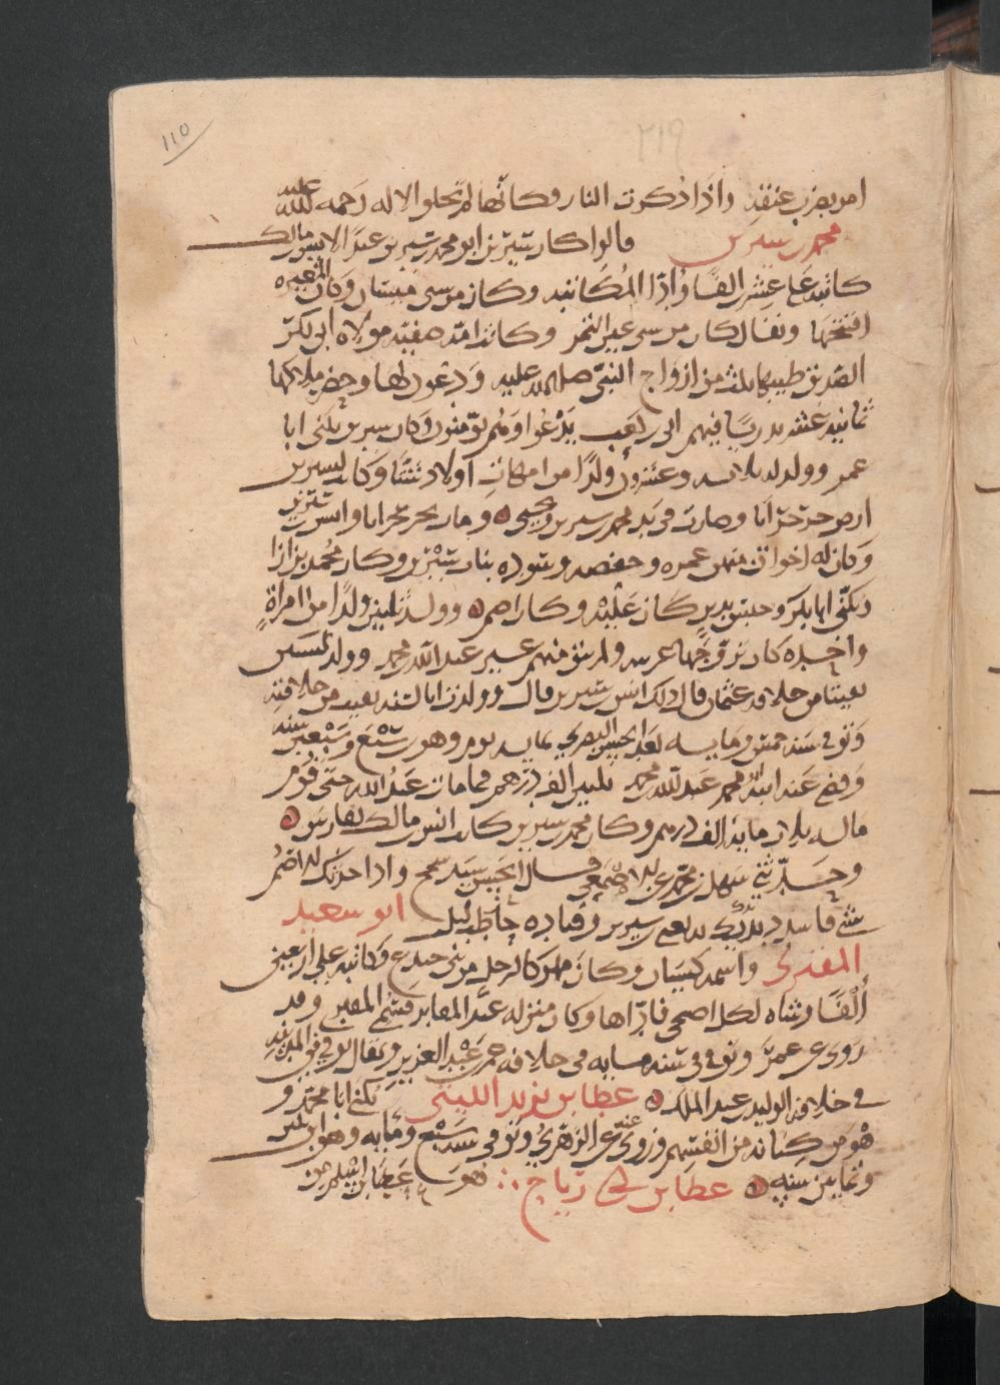 ١١٥
٢١٩
امر بضرب عنقه واذا ذكرت النار فكانها لم تخلق الا له رحمه الله عليه
محمد بن سيرين قالوا كان سيرين ابو محمد بن سيرين عبدا لانس بن مالك
كاتبه على عشرين الفا وادا المكاتبه وكان من سبي ميسان وكان المغيره
افتتحها ويقال كان من سبي عين التمر وكانت امه صفيه مولاه ابي بكر
الصديق طيبها ثلث من ازواج النبي صلى الله عليه ودعون لها وحضر ملاكها
ثمانيه عشر بدريا فيهم ابي بن كعب يدعوا وهم يومنون وكان سيرين يكنى ابا
عمره وولد له ثلاثه وعشرون ولدا من امهات اولاد شتا وكان لسيرين
ارض وصارت في يد محمد بن سيرين ويحيى ومات بحرجرايا وانس بن سيرين
وكان له اخوات منهن عمره وحفصه وسوده بنات سيرين وكان محمد بزازا
ويكنى ابا بكر وحبس بدين كان عليه وكان اصم وولد ثلثين ولدا من امراة
واحده كان تزوجها عربيه ولم يبق منهم غير عبد الله بن محمد وولد لسنتين
بقيتا من خلافه عثمان قال ذلك انس بن سيرين قال وولدت انا لسنه بقيت من خلافته
وتوفي سنه عشر ومايه بعد الحسن البصري بمايه يوم وهو بن سبع وسبعين سنه
وقضى عنه ابنه عبد الله بن محمد ثلثين الف درهم فما مات عبد الله حتى قوم
ماله ثلاث مايه الف درهم وكان محمد بن سيرين كاتب انس بن مالك بفارس
وحدثني سهل بن محمد عن الاصمعي قال الحسن سيد سمح واذا حدثك الاصم
بشي فاشدد يديك به يعني بن سيرين وقتاده حاطب ليل ابو سعيد
المقبري واسمه كيسان وكان مملوكا لرجل من بني جندع وكاتبه على اربعين
الفا وشاه لكل اضحى فاداها وكان منزله عند المقابر فسمي المقبري وقد
روى عن عمر وتوفي في سنه مايه في خلافه عمر بن عبد العزيز ويقال توفي بالمدينه
في خلافه الوليد بن عبد الملك عطا بن يزيد الليثي يكنى ابا محمد و
هو من كنانه من انفسهم وروى عنه الزهري وتوفي سنه سبع ومايه وهو ابن اثنتين
وثمانين سنه عطا بن ابي رباح هو عطا بن اسلم من